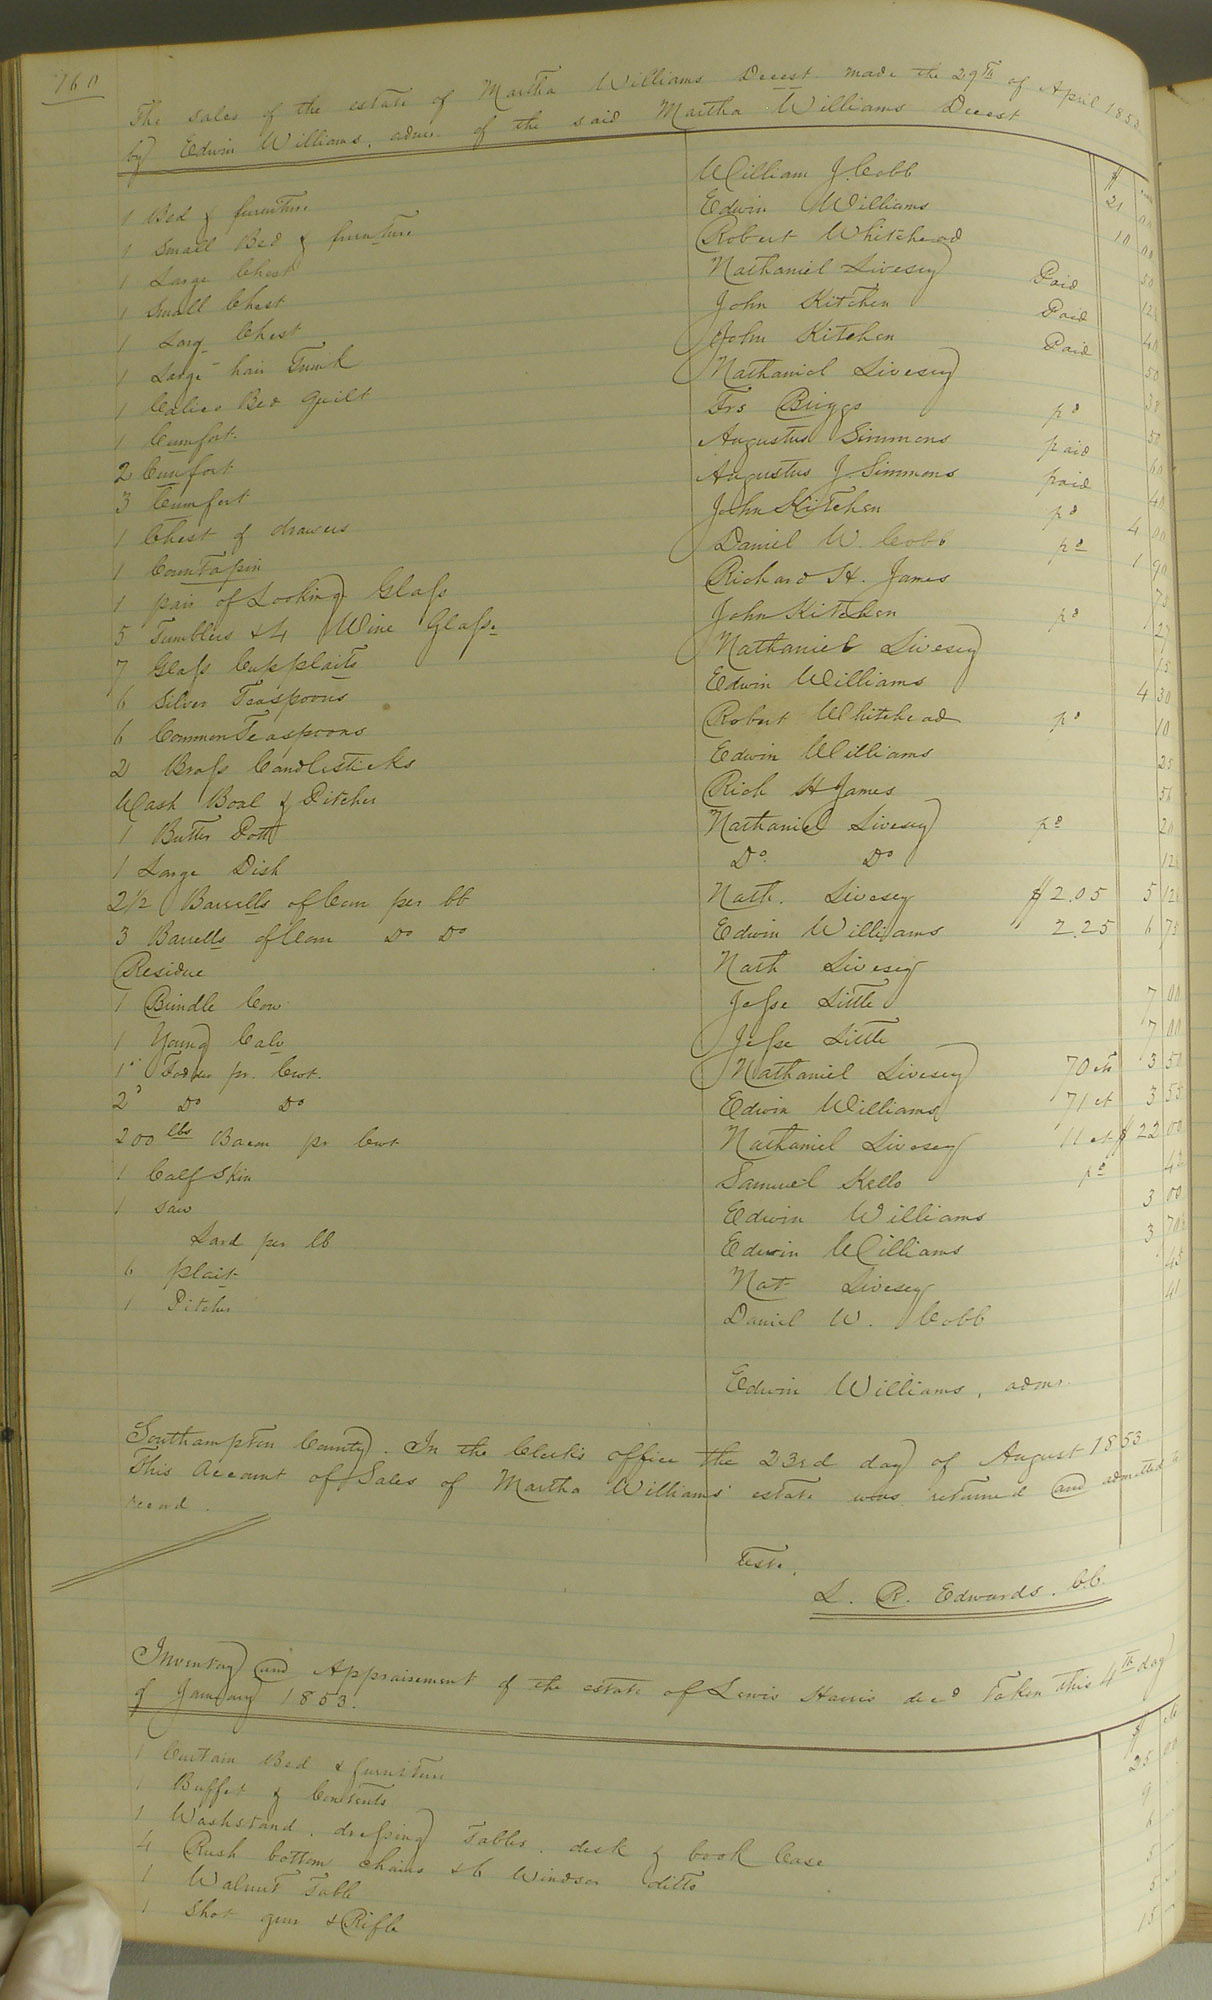 760
The sales of the estate of Martha Williams Decest. made the 29th of April 1853
by Edwin Williams, admr. of the said Martha Williams Decest
$
1 Bed & furniture William J. Cobb 21 00
1 Small Bed & furniture Edwin Williams 10 00
1 Large Chest Robert Whitehead 50
1 Small Chest Nathaniel Livesey Paid 12½
1 Larg Chest John Kitchen Paid 40
1 Large hair Trunk John Kitchen Paid 50
1 Calico Bed Quilt Nathaniel Livesey
1 Cumfort Frs Briggs pd 50
2 Cumfort Augustus Simmons paid 60
3 Cumfort Augustus J Simmons paid 40
1 Chest of drawers John Kitchen pd 4 00
1 Countapin Daniel W. Cobb pd 1 90
1 pair of Looking Glass Richard H. James 75
5 Tumblers & 4 Wine Glass John Kitchen pd 27
7 Glass Cupplaits Nathaniel Livesey 15
6 Silver Teaspoons Edwin Williams 4 30
6 Common Teaspoons Robert Whitehead pd 10
2 Brass Candlesticks Edwin Williams 25
Wash Boal & Pitcher Rich H James
1 Butter Pott Nathaniel Livesey pd 20
1 Large Dish Do Do 12½
2½ Barrells of Corn per bb Nath. Livesey $2.05 5 12½
3 Barrells of Corn Do Do Edwin Williams 2.25 6 75
Residue Nath Livesey
1 Brindle Cow Jesse Little 7 00
1 Young Calv Jesse Little 7 00
1" Fodder pr. Cwt. Nathaniel Livesey 70 cts 3 50
2" Do Do Edwin Williams 71 ct 3 55
200 lbs Bacon pr Cwt Nathaniel Livesey 11 ct $22 00
1 Calf Skin Samuel Kello pd
1 saw Edwin Williams 3 00
Lard per lb Edwin Williams 3 70½
6 plait Nat Livesey 45
1 Pitcher Daniel W. Cobb 41
Edwin Williams, admr.
Southampton County). In the Clerk's office the 23rd day of August 1853
This Account of Sales of Martha Williams' estate was returned and admitted to
record.
Teste,
L. R. Edwards. C.C.
Inventory and Appraisement of the estate of Lewis Harris decd Taken this 4th day
of January 1853.
$ cts
1 Curtain Bed & furniture 25 00
1 Buffet & Contents 9
1 Washstand, dressing Table, desk & book Case 6
4 Rush bottom chairs & 6 Windsor ditto 5
1 Walnut Table 5
1 Shot gun & Rifle 15